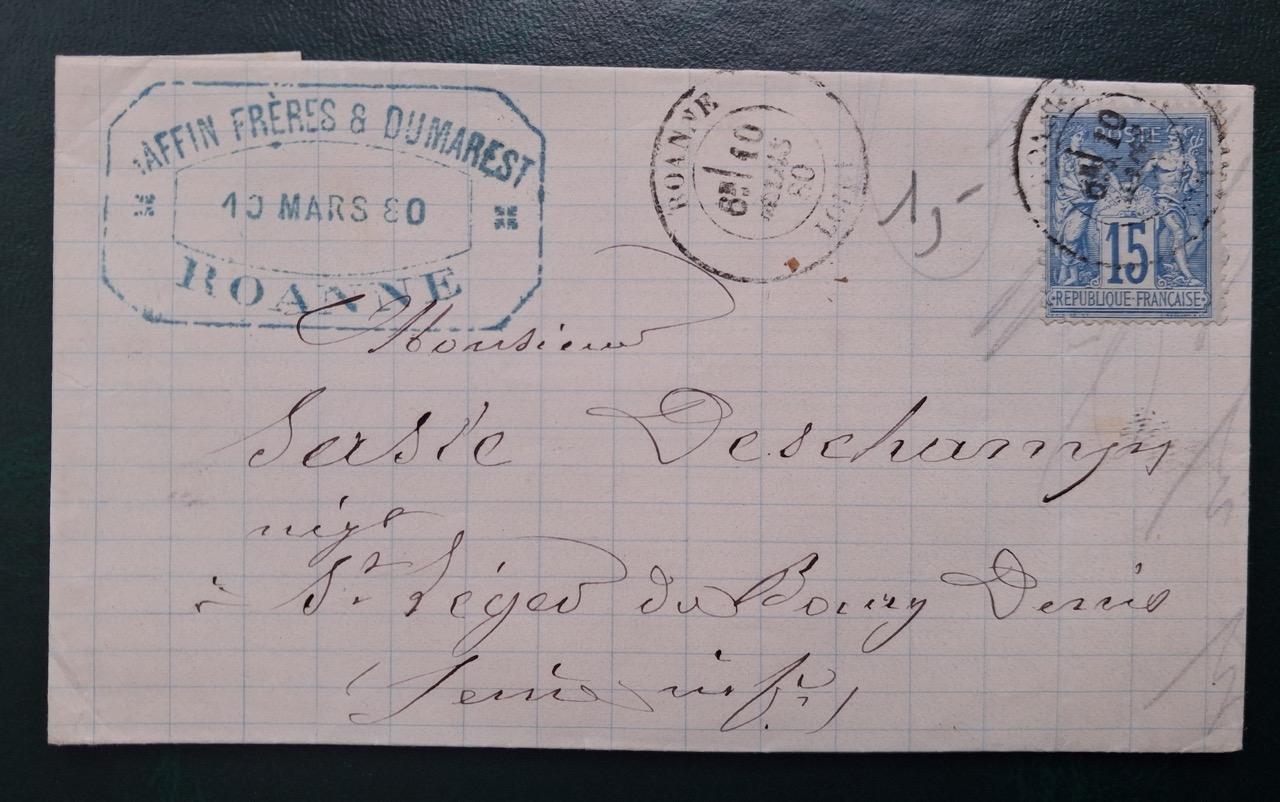 AFFIN FRÈRES & DUMAREST
10 MARS 80
ROANNE
ROANNE
6E/ 10
MARS
80
LOIRE
15
6E/ 10
POSTE
15
REPUBLIQUE FRANÇAISE
Monsieur
Deschamps
à St Léger du Bourg Denis
(Seine infre)